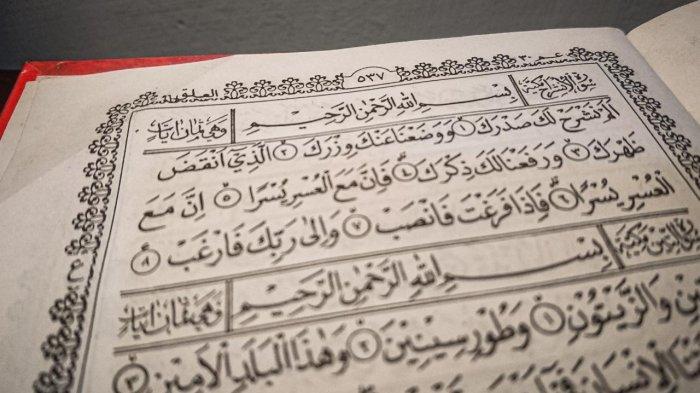 عم ٣٠ ٥٣٧
سورة الانشراح مكية بِسْمِ اللهِ الرَّحْمٰنِ الرَّحِيْمِ وهي ثمان ايات
اَلَمْ نَشْرَحْ لَكَ صَدْرَكَ ١ وَوَضَعْنَا عَنْكَ وِزْرَكَ ٢ الَّذِيْٓ اَنْقَضَ
ظَهْرَكَ ٣ وَرَفَعْنَا لَكَ ذِكْرَكَ ٤ فَاِنَّ مَعَ الْعُسْرِ يُسْرًا ٥ اِنَّ مَعَ
الْعُسْرِ يُسْرًا ٦ فَاِذَا فَرَغْتَ فَانْصَبْ ٧ وَاِلٰى رَبِّكَ فَارْغَبْ ٨
بِسْمِ اللهِ الرَّحْمٰنِ الرَّحِيْمِ وهي ثمان ايات
وَالزَّيْتُوْنِ ١ وَطُوْرِ سِيْنِيْنَ ٢ وَهٰذَا الْبَلَدِ الْاَمِيْنِ ٣
الْاِنْسَانَ